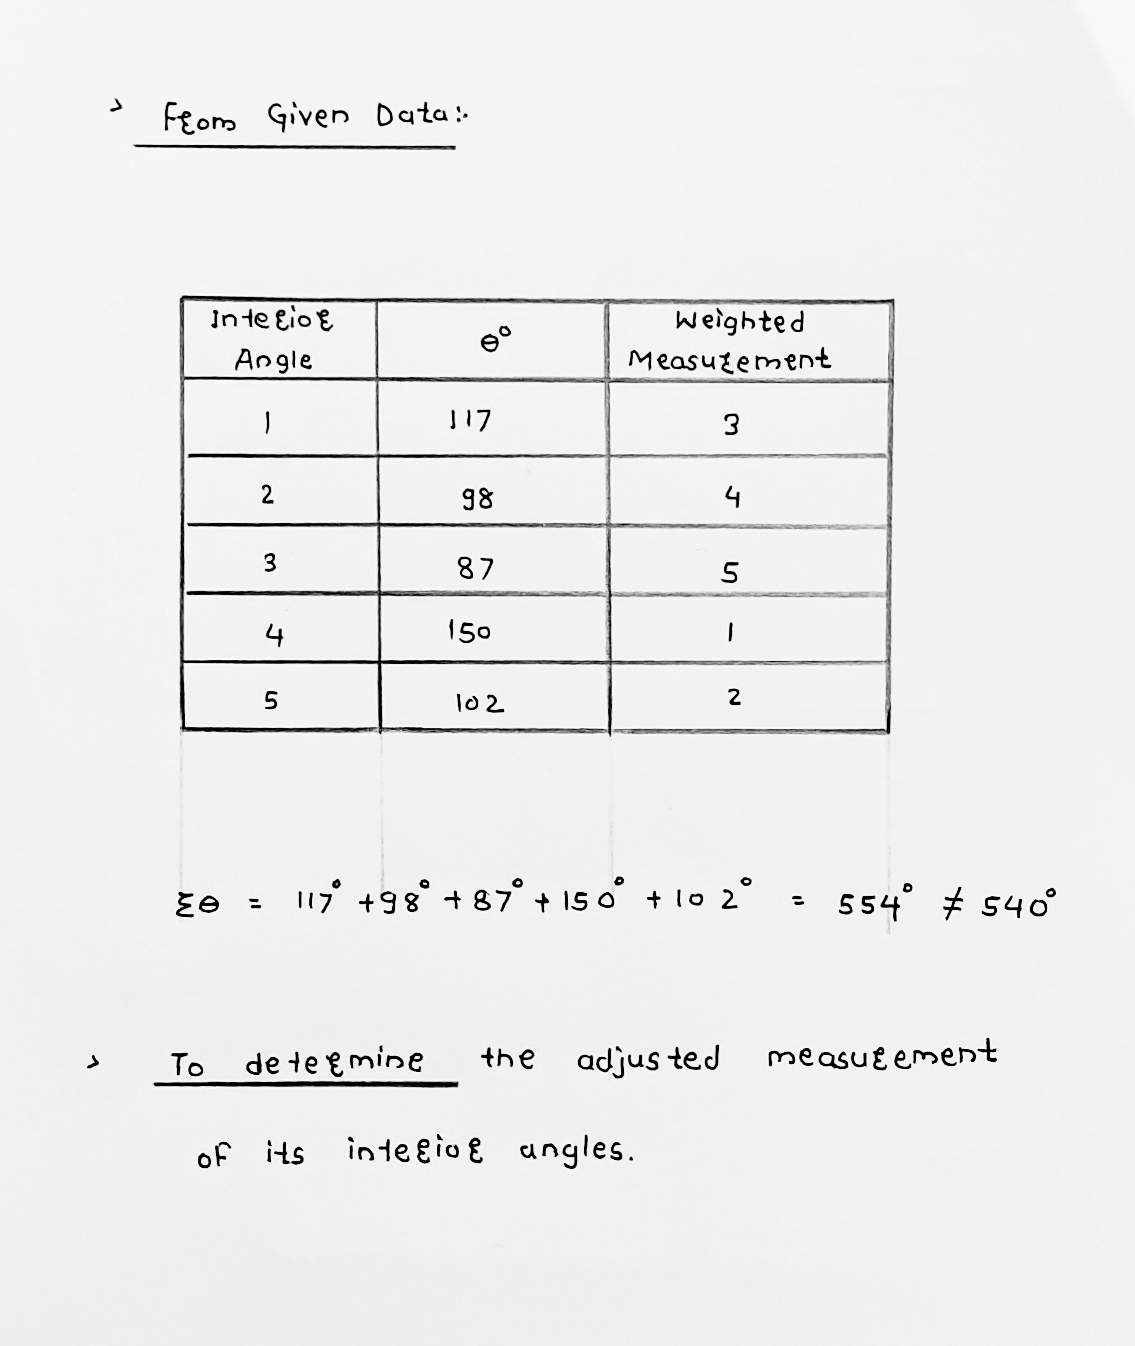 > From Given Data:-
Interior Angle | θ° | Weighted Measurement
1 | 117 | 3
2 | 98 | 4
3 | 87 | 5
4 | 150 | 1
5 | 102 | 2
Σθ = 117° + 98° + 87° + 150° + 102° = 554° ≠ 540°
> To determine the adjusted measurement
of its interior angles.